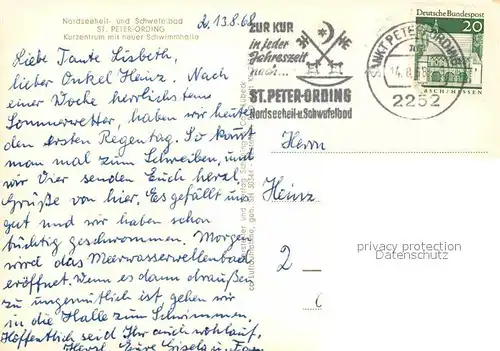 Nordseeheil- und Schwefelbad
ST. PETER-ORDING
Kurzentrum mit neuer Schwimmhalle
d. 13.8.68
Liebe Tante Lisbeth,
lieber Onkel Heinz. Nach
einer Woche herrlichstem
Sommerwetter, haben wir heute
den ersten Regentag. So kommt
man mal zum Schreiben, und
wir Vier senden Euch herzl.
Grüße von hier. Es gefällt uns
gut und wir haben schon
tüchtig geschwommen. Morgen
wird das Meerwasserwellenbad
eröffnet. Wenn es dann draußen
zu ungemütlich ist gehen wir
in die Halle zum Schwimmen.
Hoffentlich seid Ihr auch wohlauf.
Herzl. Eure Gisela u. Fam.
ZUR KUR
in jeder
Jahreszeit
nach...
ST. PETER-ORDING
Nordseeheil-u. Schwefelbad
SANKT PETER-ORDING
14.8.68
2252
Deutsche Bundespost
20
LORSCH/HESSEN
Herrn
Heinz
2
privacy protection
Datenschutz